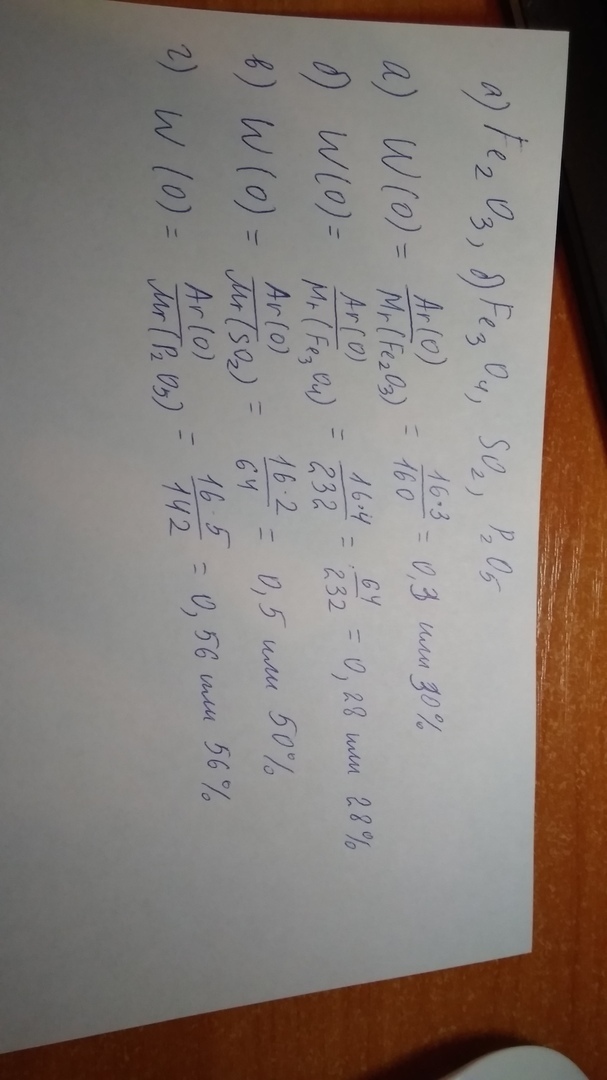 а) Fe₂O₃, б) Fe₃O₄, SO₂, P₂O₅
а) W(O) = Ar(O)/Mr(Fe₂O₃) = 16·3/160 = 0,3 или 30%
б) W(O) = Ar(O)/Mr(Fe₃O₄) = 16·4/232 = 64/232 = 0,28 или 28%
в) W(O) = Ar(O)/Mr(SO₂) = 16·2/64 = 0,5 или 50%
г) W(O) = Ar(O)/Mr(P₂O₅) = 16·5/142 = 0,56 или 56%